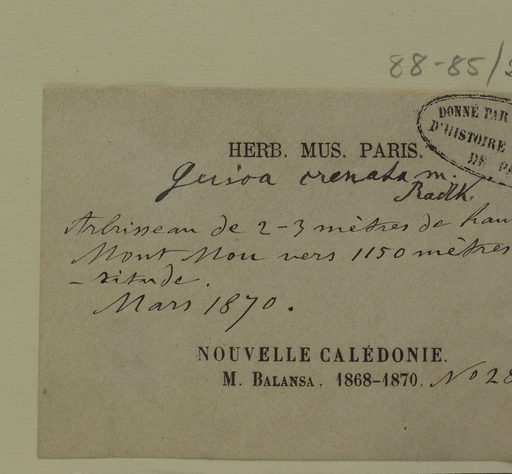 88-85/
DONNÉ PAR
D'HISTOIRE
DE
HERB. MUS. PARIS.
Guioa crenata m.
Radlk.
Arbrisseau de 2-3 mètres de hau
Mont Mou vers 1150 mètres
-titude.
Mars 1870.
NOUVELLE CALÉDONIE.
M. BALANSA. 1868-1870. No 28